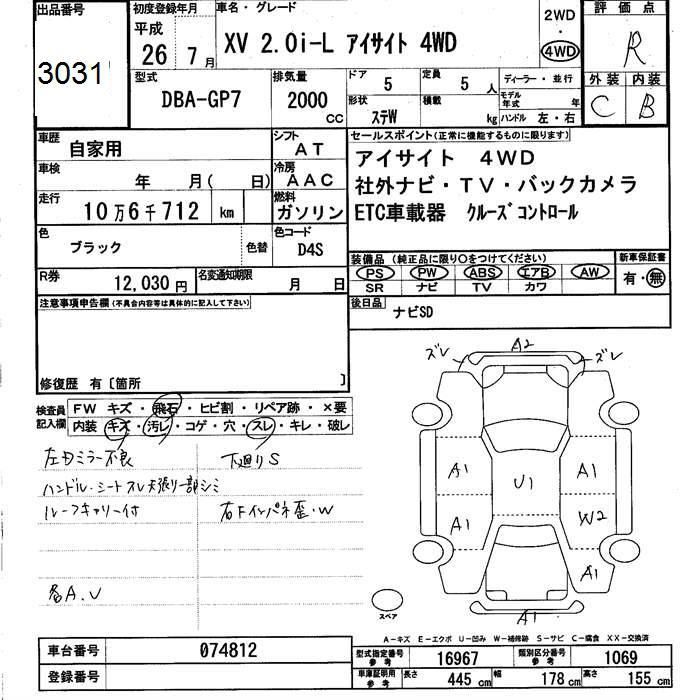 出品番号
3031
初度登録年月
平成
26年 7月
車名・グレード
XV 2.0i-L アイサイト 4WD
2WD
・
4WD
評価点
R
外装 内装
C B
型式
DBA-GP7
排気量
2000 CC
ドア 5
定員 5 人
形状 ステW
積載 kg
ディーラー・並行
モデル年式 年
ハンドル 左・右
車歴 自家用
シフト AT
車検 年 月( 日)
冷房 AAC
走行 10万6千712 km
燃料 ガソリン
色 ブラック 色替
色コード D4S
R券 12,030円
名変通知期限 月 日
セールスポイント(正常に機能するものに限ります)
アイサイト 4WD
社外ナビ・TV・バックカメラ
ETC車載器 クルーズコントロール
装備品 (純正品に限り○をつけてください)
PS PW ABS エアB AW
SR ナビ TV カワ
新車保証書
有・無
後日品
ナビSD
注意事項申告欄(不具合内容等は具体的に記入して下さい)
修復歴 有〔箇所 〕
検査員記入欄
FW キズ・飛石・ヒビ割・リペア跡・×要
内装 キズ・汚レ・コゲ・穴・スレ・キレ・破レ
左Dミラー不良
下廻りS
ハンドル・シートスレ 天張り一部シミ
ルーフキャリー付
右Fインパネ歪・W
各A.U
ズレ A2 ズレ
A1 U1 A1
A1 W2
A1
A1
スペア
A-キズ E-エクボ U-凹み W-補修跡 S-サビ C-腐食 XX-交換済
車台番号 074812
登録番号
型式指定番号 参考 16967
類別区分番号 参考 1069
車庫証明用 参考 長さ 445 cm 幅 178 cm 高さ 155 cm